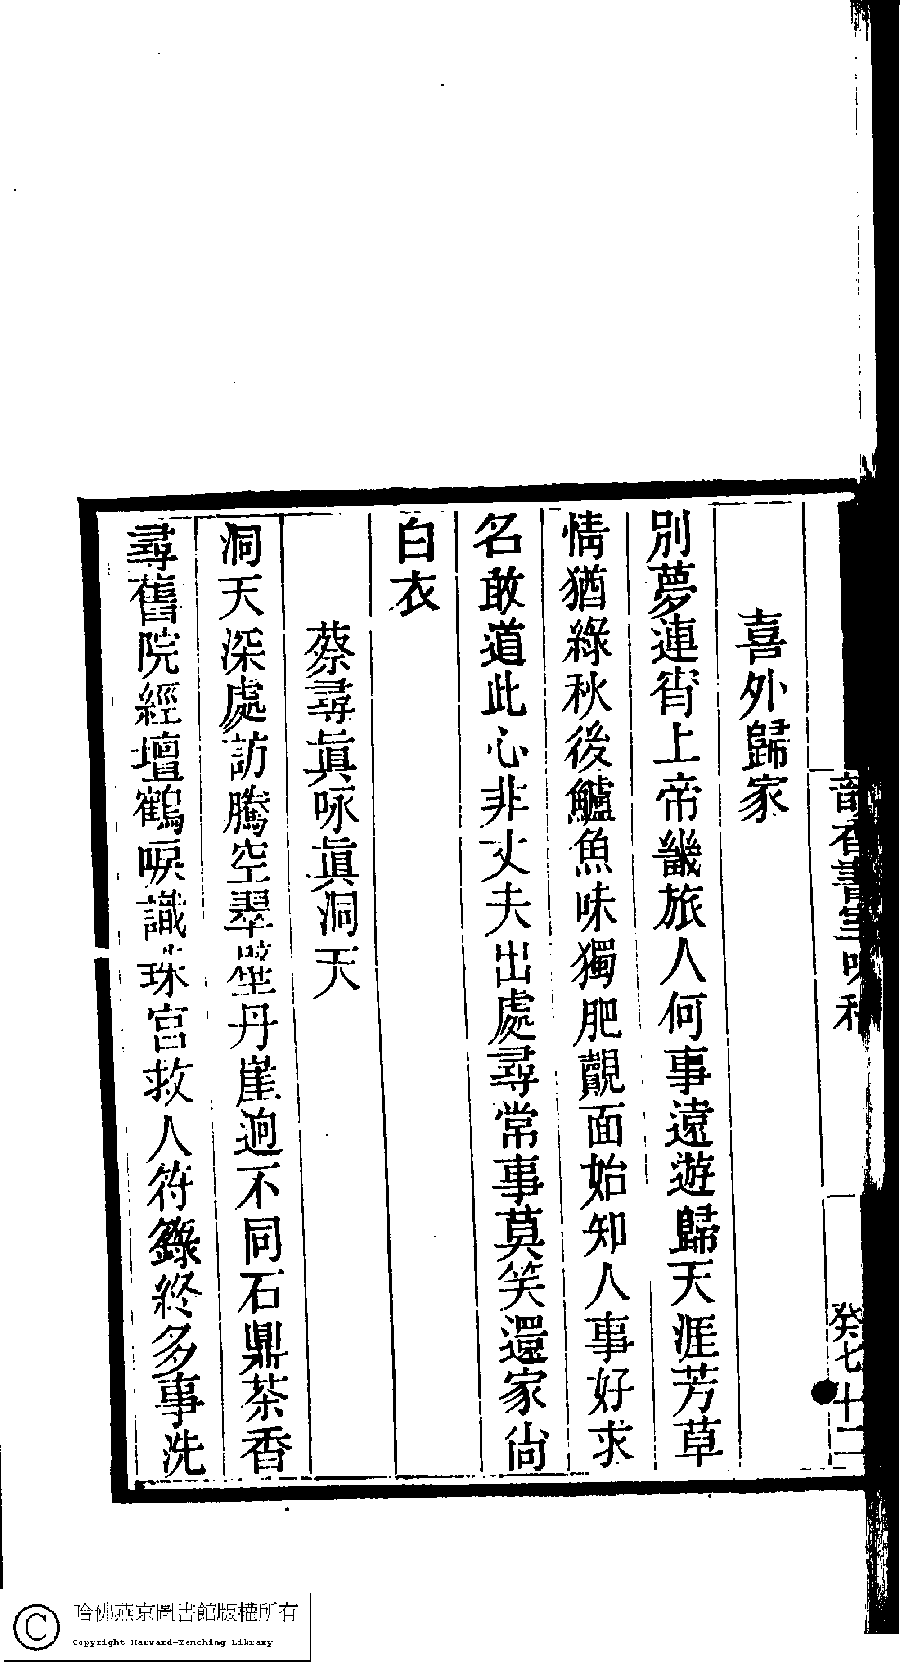 喜外歸家
別夢連宵上帝畿旅人何事遠遊歸天涯芳草
情猶綠秋後鱸魚味獨肥覿面始知人事好求
名敢道此心非丈夫出處尋常事莫笑還家尙
白衣
蔡尋眞咏眞洞天
洞天深處訪騰空翠壁丹崖逈不同石鼎茶香
尋舊院經壇鶴唳識珠宮救人符籙終多事洗
癸七十二
哈佛燕京圖書館版權所有
Copyright Harvard-Yenching Library